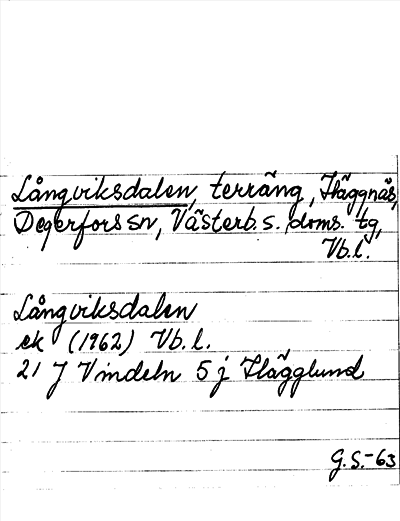 Långviksdalen, terräng, Häggnäs,
Degerfors sn, Västerb. s. doms. tg,
Vb.l.
Långviksdalen
ek (1962) Vb.l.
21 J Vindeln 5 j Hägglund
G.S.-63